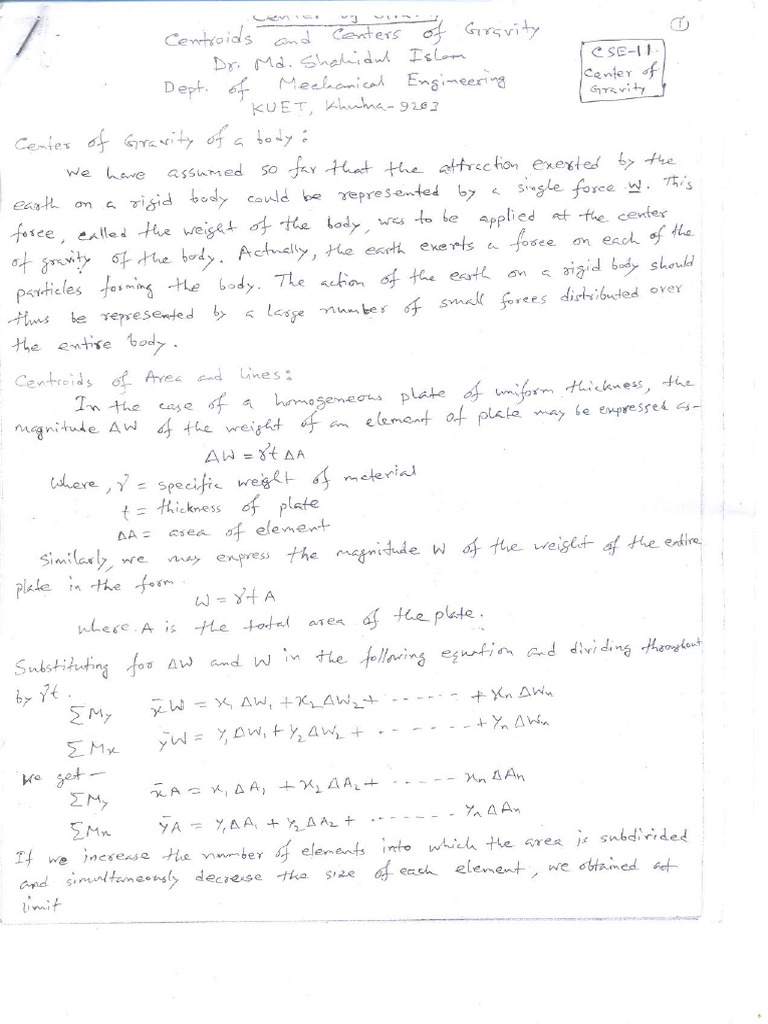 ①
Centroids and Centers of Gravity
CSE-11
Center of
Gravity
Dr. Md. Shahidul Islam
Dept. of Mechanical Engineering
KUET, Khulna-9203
Center of Gravity of a body:
We have assumed so far that the attraction exerted by the
earth on a rigid body could be represented by a single force W. This
force, called the weight of the body, was to be applied at the center
of gravity of the body. Actually, the earth exerts a force on each of the
particles forming the body. The action of the earth on a rigid body should
thus be represented by a large number of small forces distributed over
the entire body.
Centroids of Area and lines:
In the case of a homogeneous plate of uniform thickness, the
magnitude ΔW of the weight of an element of plate may be expressed as-
ΔW = γt ΔA
Where, γ = specific weight of meterial
t = thickness of plate
ΔA = area of element
Similarly, we may express the magnitude W of the weight of the entire
plate in the form.
W = γt A
where A is the total area of the plate.
Substituting for ΔW and W in the following equation and dividing throughout
by γt.
ΣMy x̄W = x₁ ΔW₁ + x₂ ΔW₂ + ------ + xn ΔWn
ΣMx ȳW = y₁ ΔW₁ + y₂ ΔW₂ + ------- + yn ΔWn
We get—
ΣMy x̄A = x₁ ΔA₁ + x₂ ΔA₂ + ------ xn ΔAn
ΣMx ȳA = y₁ ΔA₁ + y₂ ΔA₂ + ------ yn ΔAn
If we increase the number of elements into which the area is subdivided
and simultaneously decrease the size of each element, we obtained at
limit